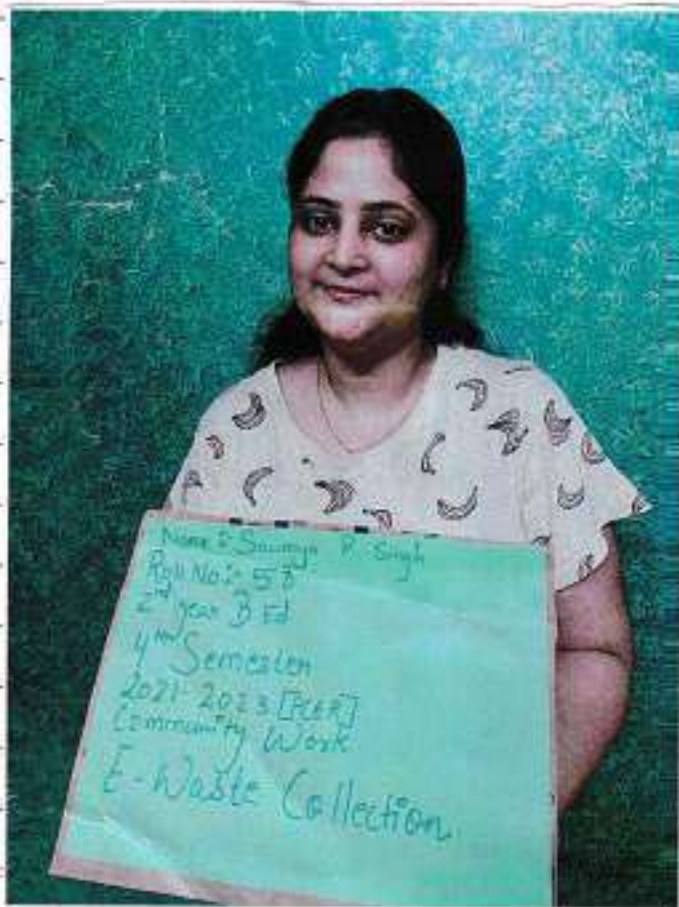 Name : Saumya P. Singh
Roll No : 58
2nd year B Ed
4th Semester
2021-2023 [PCER]
Community Work
E-Waste Collection